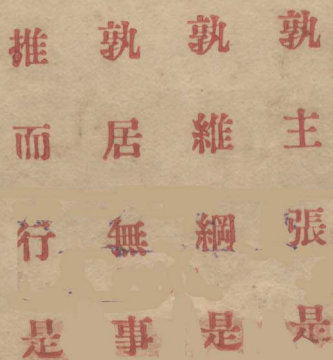 孰主張是
孰維綱是
孰居無事
推而行是